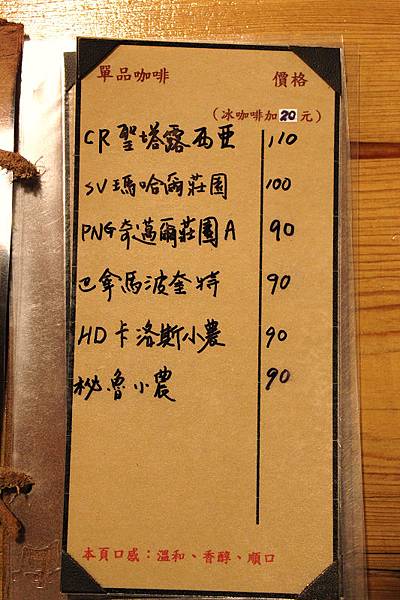 單品咖啡 價格
(冰咖啡加20元)
CR聖塔露西亞 110
SV瑪哈爾莊園 100
PNG奇邁爾莊園A 90
巴拿馬波奎特 90
HD卡洛斯小農 90
秘魯小農 90
本頁口感：溫和、香醇、順口